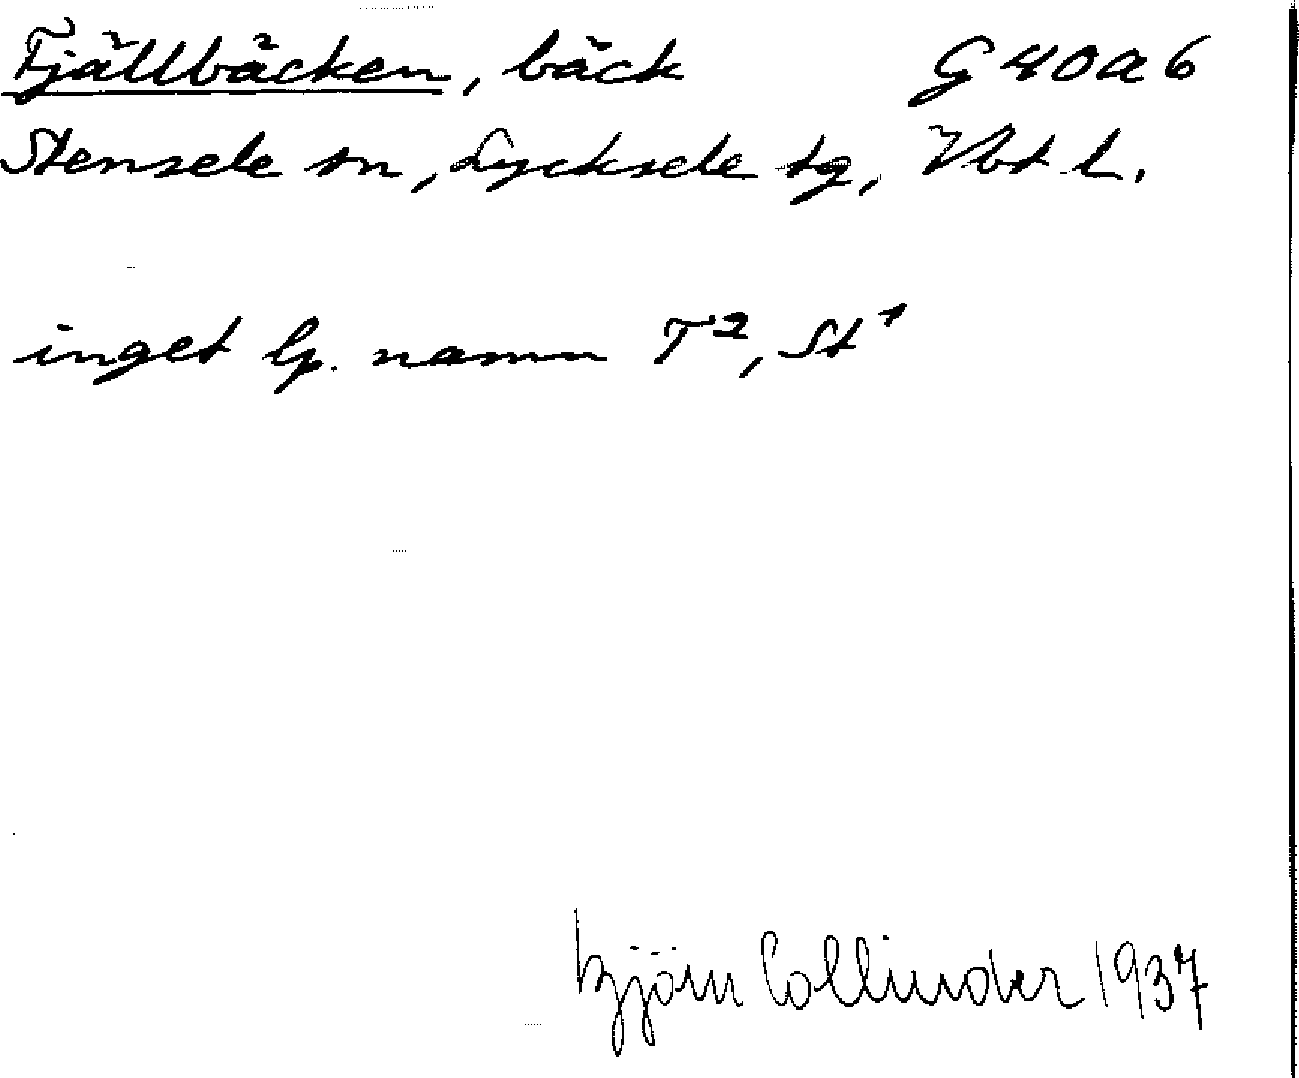 Fjällbäcken, bäck G 40 a 6
Stensele sn, Lycksele tg, Vbt l.
inget lp. namn T², St¹
Björn Collinder 1937